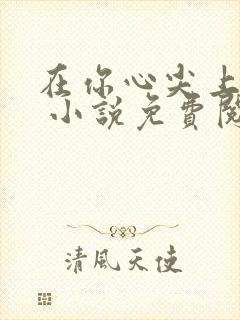 在你心尖上
小說免費閱
清風天使